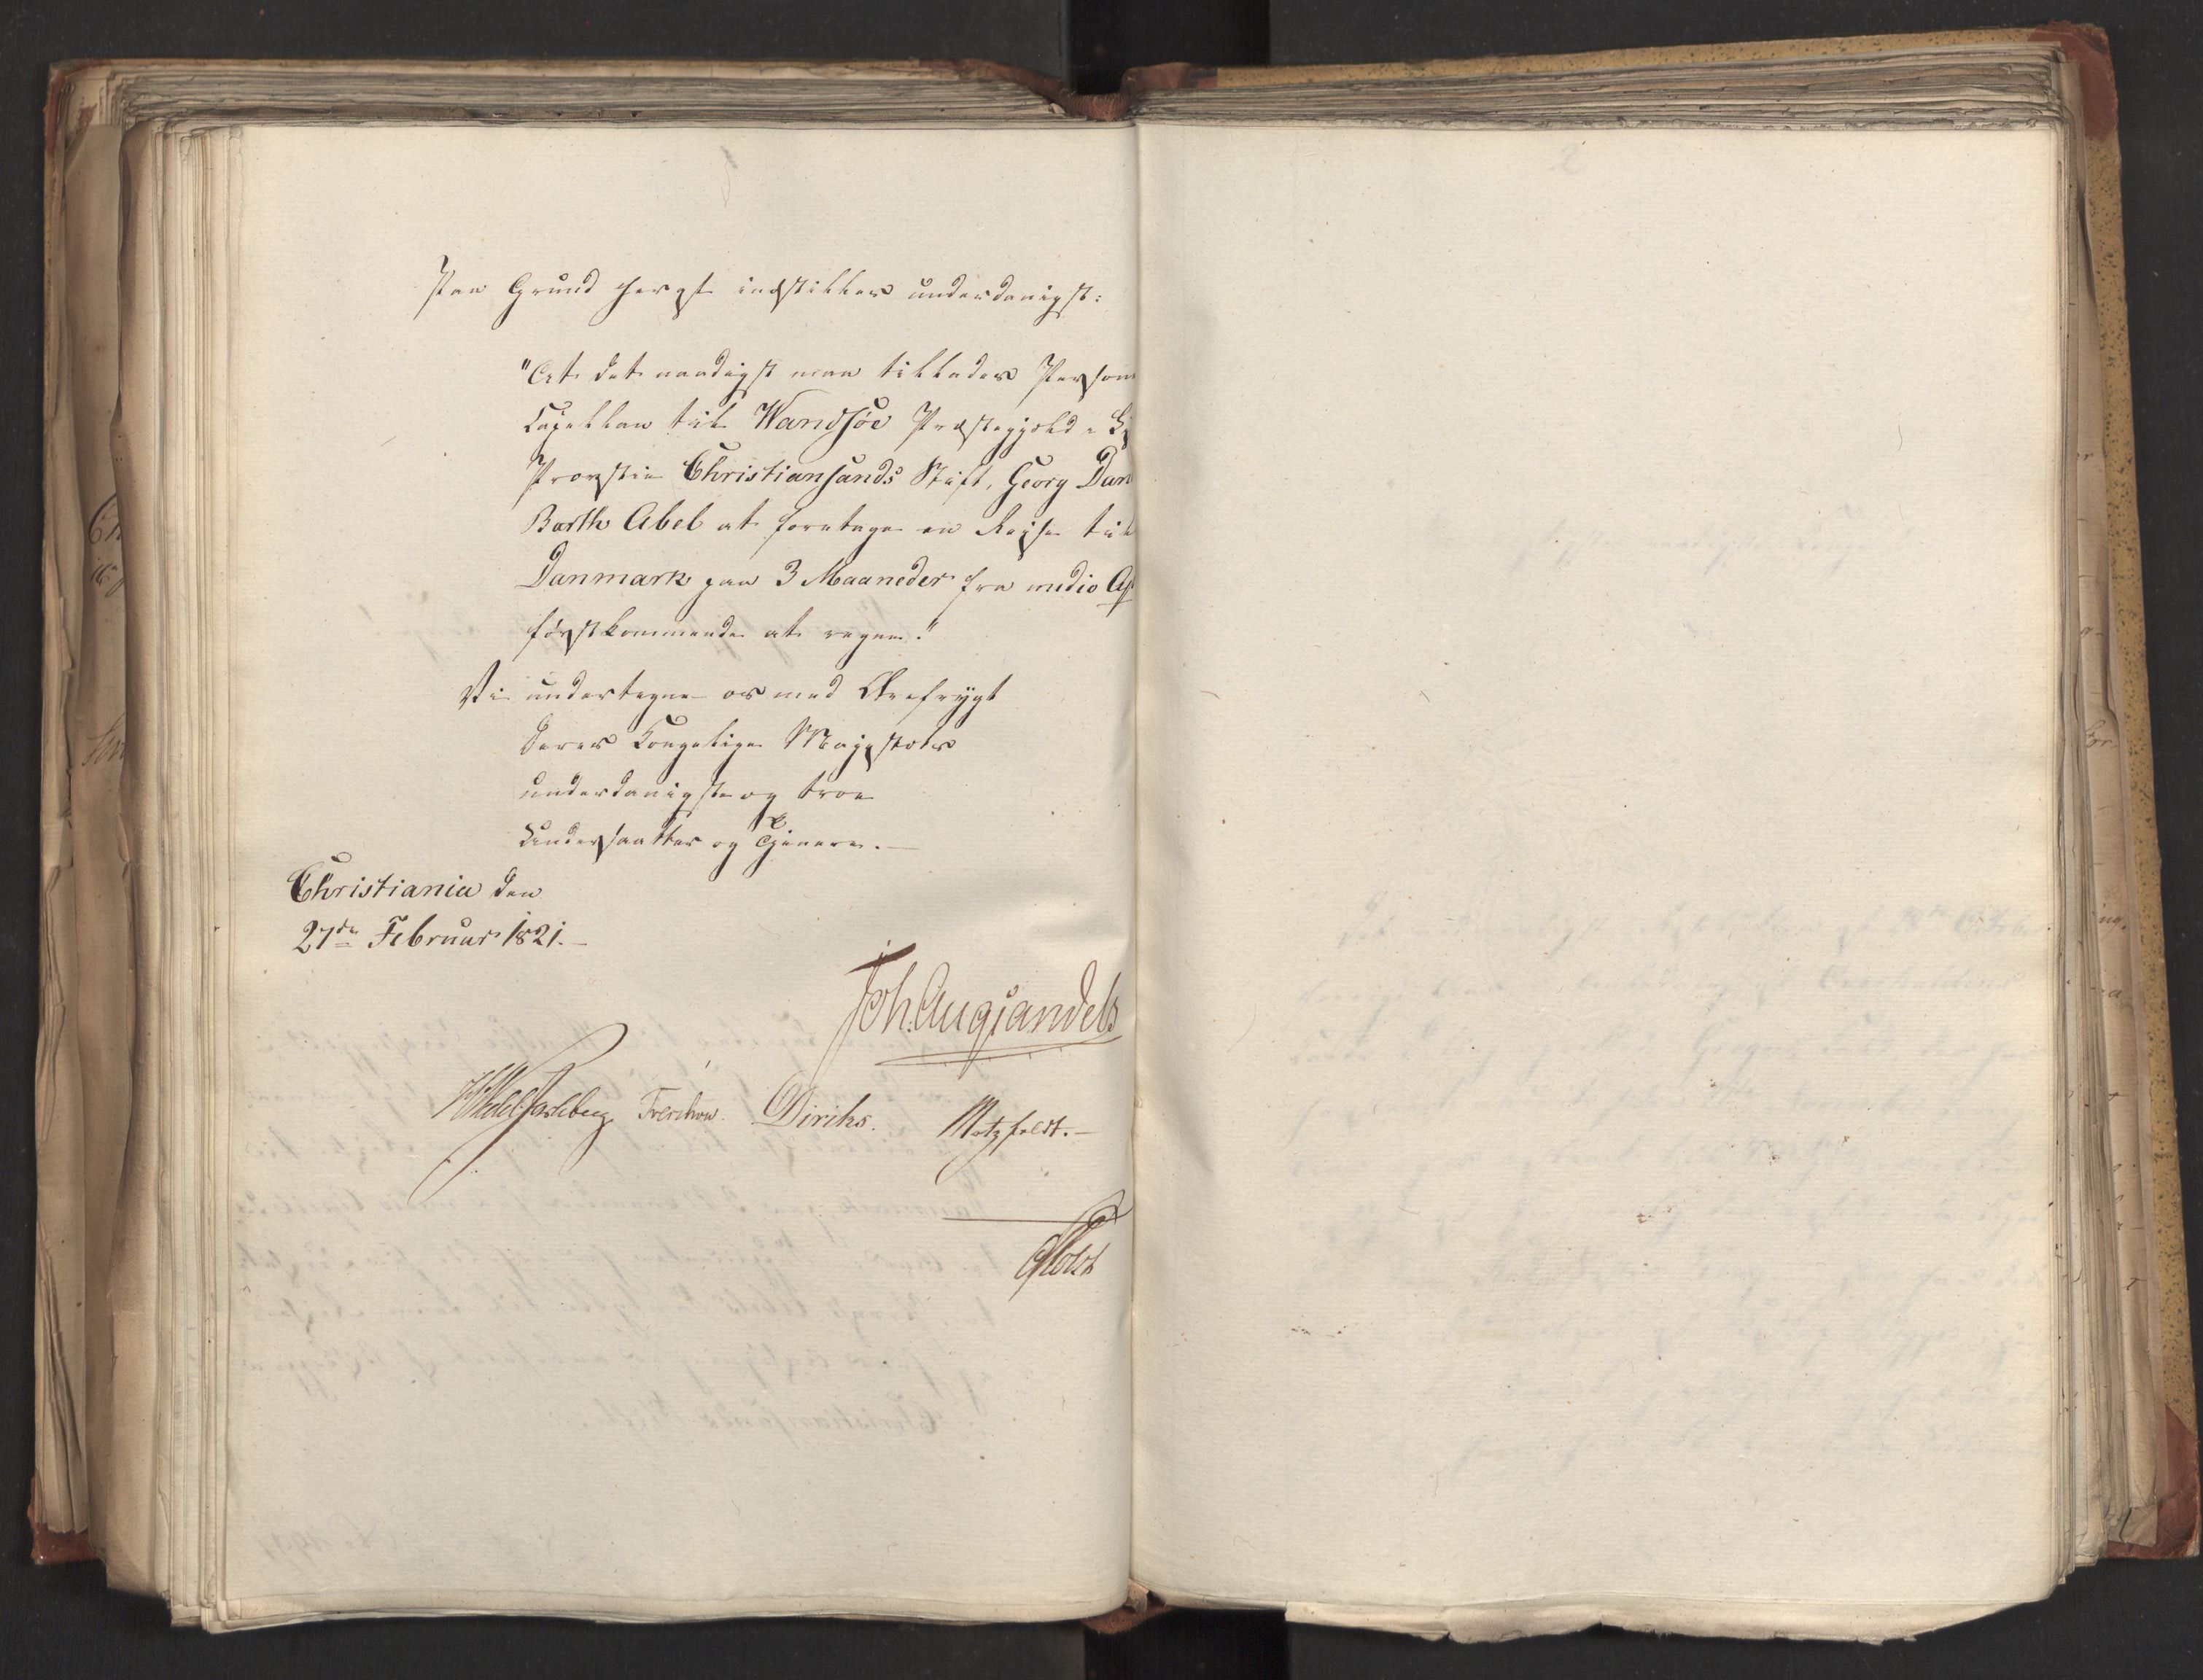 Paa Grund heraf indstilles underdanigst:
"At det naadigst maa tillades Person
Capellan til Wandsøe Præstegjeld i
Provstie Christiansands Stift, Georg Dan
Barth Abel at foretage en Reise til
Danmark paa 3 Maaneder fra medio Ap
førstkommende at regne."
Vi undertegne os med Ærefrygt
Deres Kongelige Majestæts
underdanigste og troe
Undersaatter og Tjenere.—
Christiania den
27de Februar 1821.—
Joh. Aug Sandels
HWedel Jarlsberg Treschow. Diriks. Motzfeldt.—
Holst